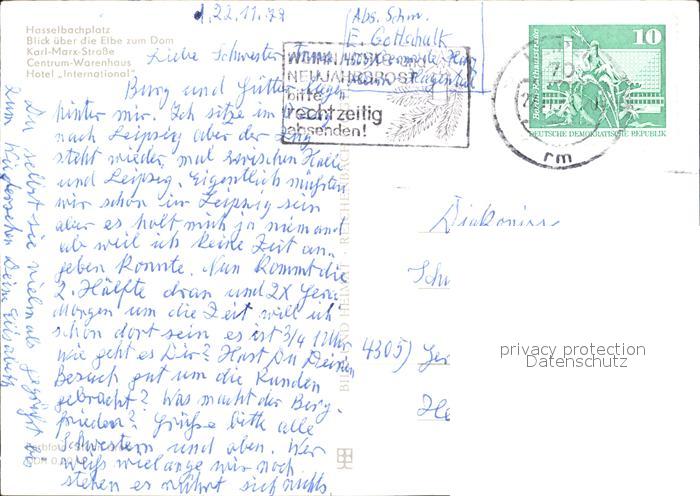 Hasselbachplatz
Blick über die Elbe zum Dom
Karl-Marx-Straße
Centrum-Warenhaus
Hotel „International“
d. 22.11.79
Abs. Schw.
E. Gottschalk
Liebe Schwester
WEIHNACHTS- und
NEUJAHRSPOST
bitte
rechtzeitig
absenden!
10
DEUTSCHE DEMOKRATISCHE REPUBLIK
70
rm
Burg und Gütter liegen
hinter mir. Ich sitze im
nach Leipzig aber der Zug
steht wieder mal zwischen Halle
und Leipzig. Eigentlich müßten
wir schon in Leipzig sein
aber es holt mich ja niemand
ab weil ich keine Zeit an-
geben konnte. Nun kommt die
2. Hälfte dran und 2x Gera
Morgen um die Zeit will ich
schon dort sein es ist 3/4 12 Uhr
wie geht es Dir? Hast Du Deinen
Besuch gut um die Runden
gebracht? Was macht der Burg-
frieden? Grüße bitte alle
Schwestern und aben. Wer
weiß wielange wir noch
stehen es rührt sich nichts
Du selbst sei vielmals gegrüßt bis
zum Wiedersehen Deine Elisabeth
BILD UND HEIMAT · REICHENBACH
Diakoniss
Schw
4305) Ger
He
privacy protection
Datenschutz